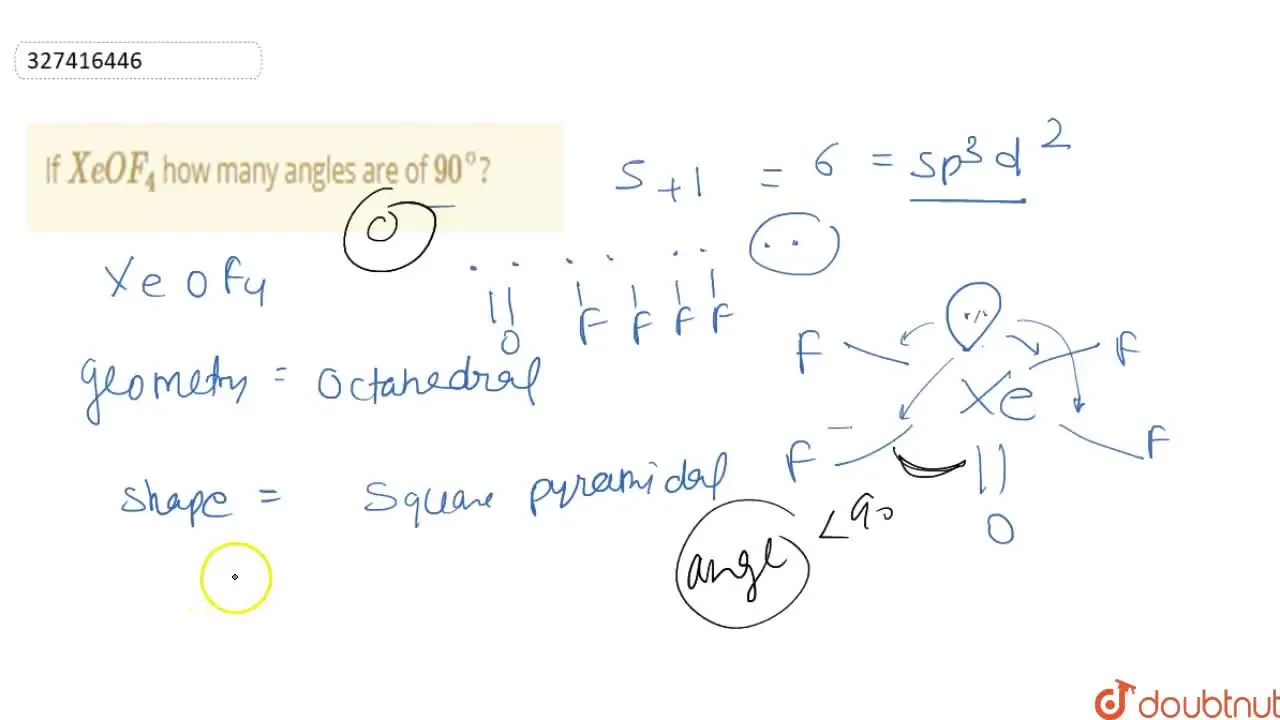 327416446
If XeOF₄ how many angles are of 90°?
0
5 + 1 = 6 = sp³d²
XeOF4
O F F F F
geometry = Octahedral
shape = Square pyramidal
F F
Xe
F F
O
angle < 90
doubtnut